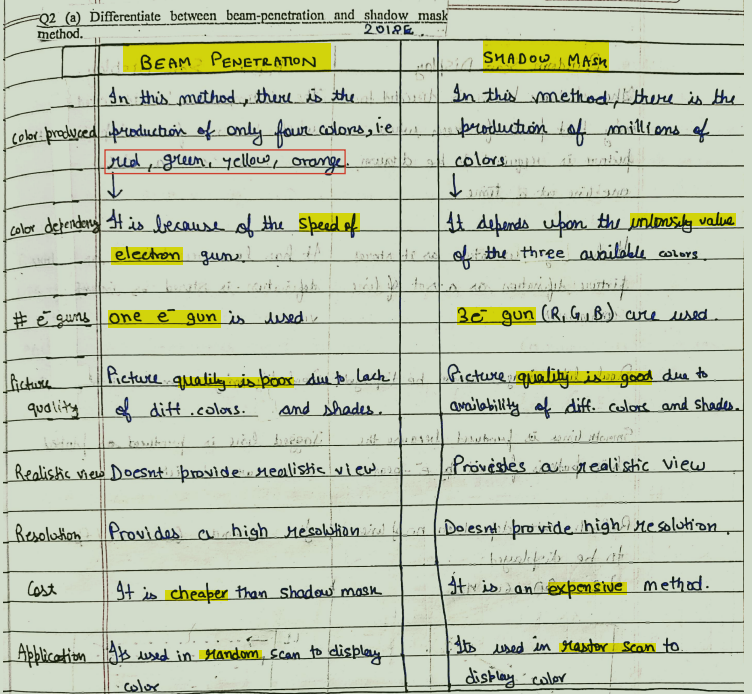 Q2 (a) Differentiate between beam-penetration and shadow mask
method. 2018E
BEAM PENETRATION SHADOW MASK
color produced In this method, there is the production of only four colors, i.e red, green, yellow, orange. In this method, there is the production of millions of colors
color dependency It is because of the speed of electron gun. It depends upon the intensity value of the three available colors.
# e⁻ guns one e⁻ gun is used 3e⁻ gun (R, G, B) are used.
Picture quality Picture quality is poor due to lack of diff. colors. and shades. Picture quality is good due to availability of diff. colors and shades.
Realistic view Doesnt provide realistic view Provides a realistic view
Resolution Provides a high resolution Doesnt provide high resolution.
Cost It is cheaper than shadow mask It is an expensive method.
Application Its used in random scan to display color Its used in rastor scan to display color